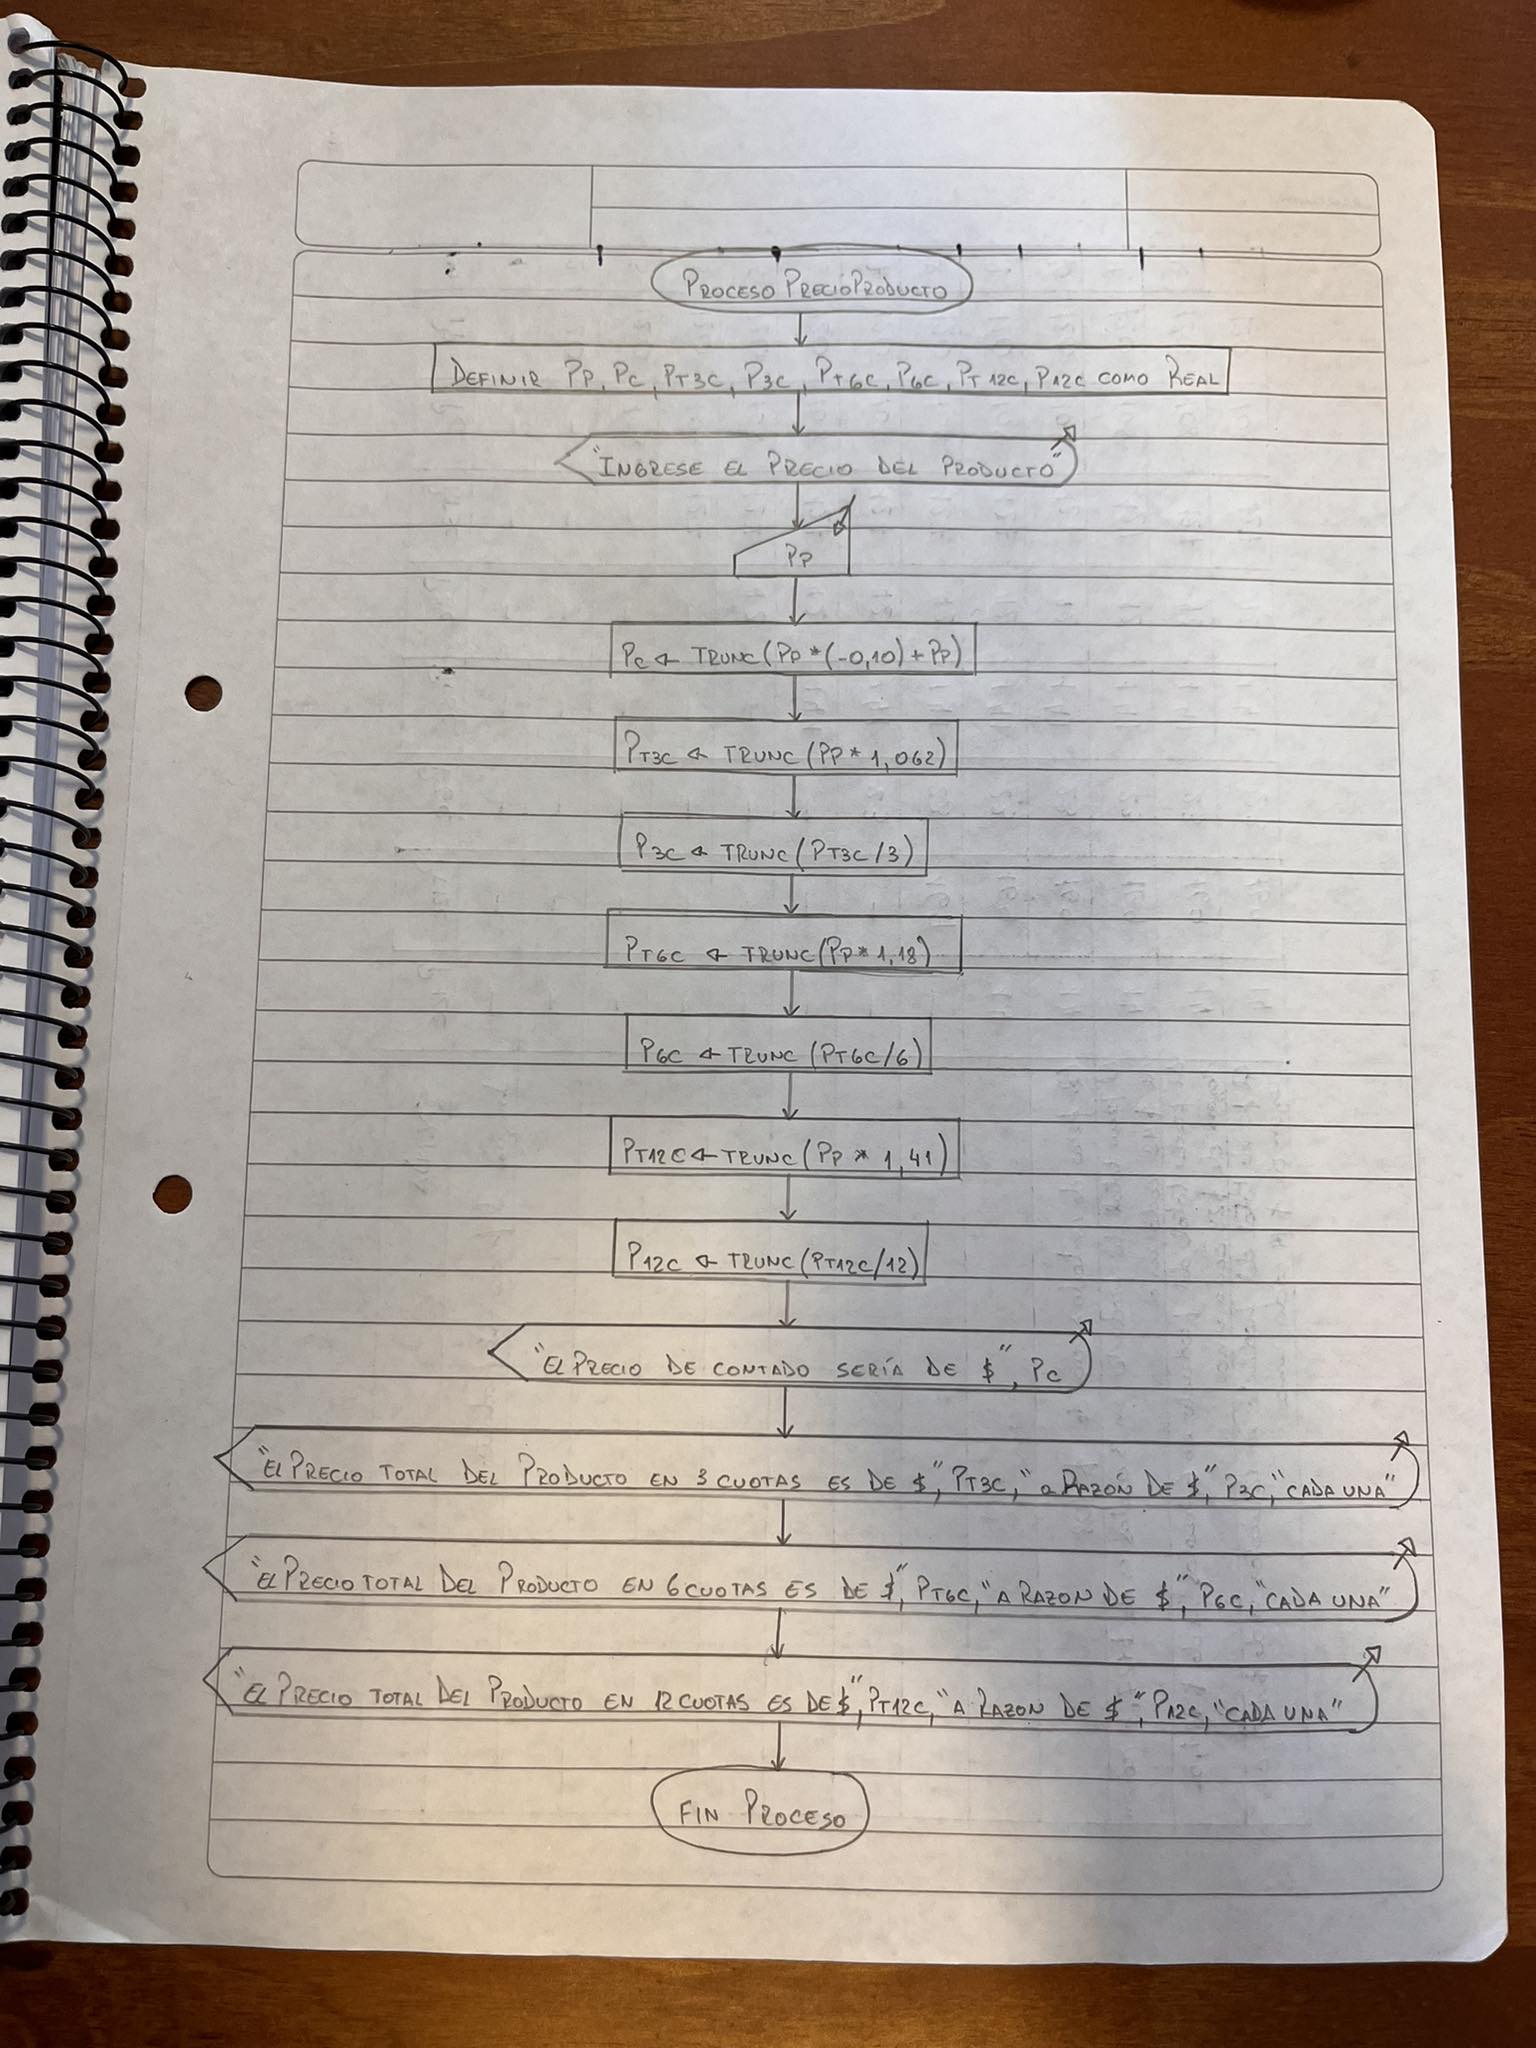 PROCESO PRECIOPRODUCTO
DEFINIR PP, PC, PT3C, P3C, PT6C, P6C, PT12C, P12C COMO REAL
"INGRESE EL PRECIO DEL PRODUCTO"
PP
PC ← TRUNC(PP*(-0,10)+PP)
PT3C ← TRUNC(PP*1,062)
P3C ← TRUNC(PT3C/3)
PT6C ← TRUNC(PP*1,18)
P6C ← TRUNC(PT6C/6)
PT12C ← TRUNC(PP*1,41)
P12C ← TRUNC(PT12C/12)
"EL PRECIO DE CONTADO SERÍA DE $", PC
"EL PRECIO TOTAL DEL PRODUCTO EN 3 CUOTAS ES DE $", PT3C, "a RAZÓN DE $", P3C, "CADA UNA"
"EL PRECIO TOTAL DEL PRODUCTO EN 6 CUOTAS ES DE $", PT6C, "A RAZON DE $", P6C, "CADA UNA"
"EL PRECIO TOTAL DEL PRODUCTO EN 12 CUOTAS ES DE $", PT12C, "A RAZON DE $", P12C, "CADA UNA"
FIN PROCESO